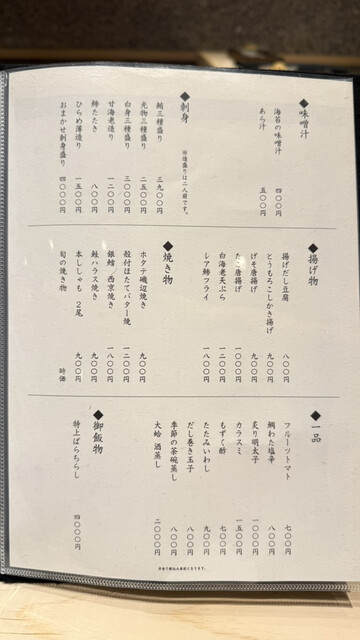 ◆味噌汁
海苔の味噌汁 四〇〇円
あら汁 五〇〇円
◆刺身
※造盛りは二人前です。
鮪三種盛り 三九〇〇円
光物三種盛り 二五〇〇円
白身三種盛り 三〇〇〇円
甘海老造り 一二〇〇円
鯵たたき 八〇〇円
ひらめ薄造り 一五〇〇円
おまかせ刺身盛り 四〇〇〇円
◆揚げ物
揚げだし豆腐 八〇〇円
とうもろこしかき揚げ 九〇〇円
げそ唐揚げ 九〇〇円
たこ唐揚げ 一〇〇〇円
白海老天ぷら 一二〇〇円
レア鯵フライ 一八〇〇円
◆焼き物
ホタテ磯辺焼き 九〇〇円
殻付ほたてバター焼 一二〇〇円
銀鱈/西京焼き 一八〇〇円
鮭ハラス焼き 九〇〇円
本ししゃも 2尾 九〇〇円
旬の焼き物 時価
◆一品
フルーツトマト 七〇〇円
鯛わた塩辛 八〇〇円
炙り明太子 一〇〇〇円
カラスミ 一五〇〇円
もずく酢 七〇〇円
たたみいわし 九〇〇円
だし巻き玉子 八〇〇円
季節の茶碗蒸し 八〇〇円
大蛤 酒蒸し 二〇〇〇円
◆御飯物
特上ばらちらし 四〇〇〇円